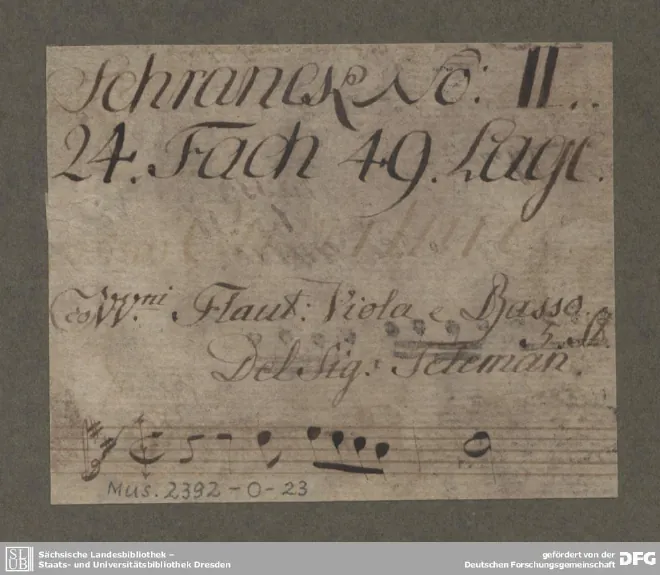 Schranck No: II.
24. Fach 49. Lage.
co VV.ni Flaut: Viola e Basso.
Del Sig: Teleman.
Mus. 2392-0-23
SLUB
Sächsische Landesbibliothek –
Staats- und Universitätsbibliothek Dresden
gefördert von der
Deutschen Forschungsgemeinschaft
DFG